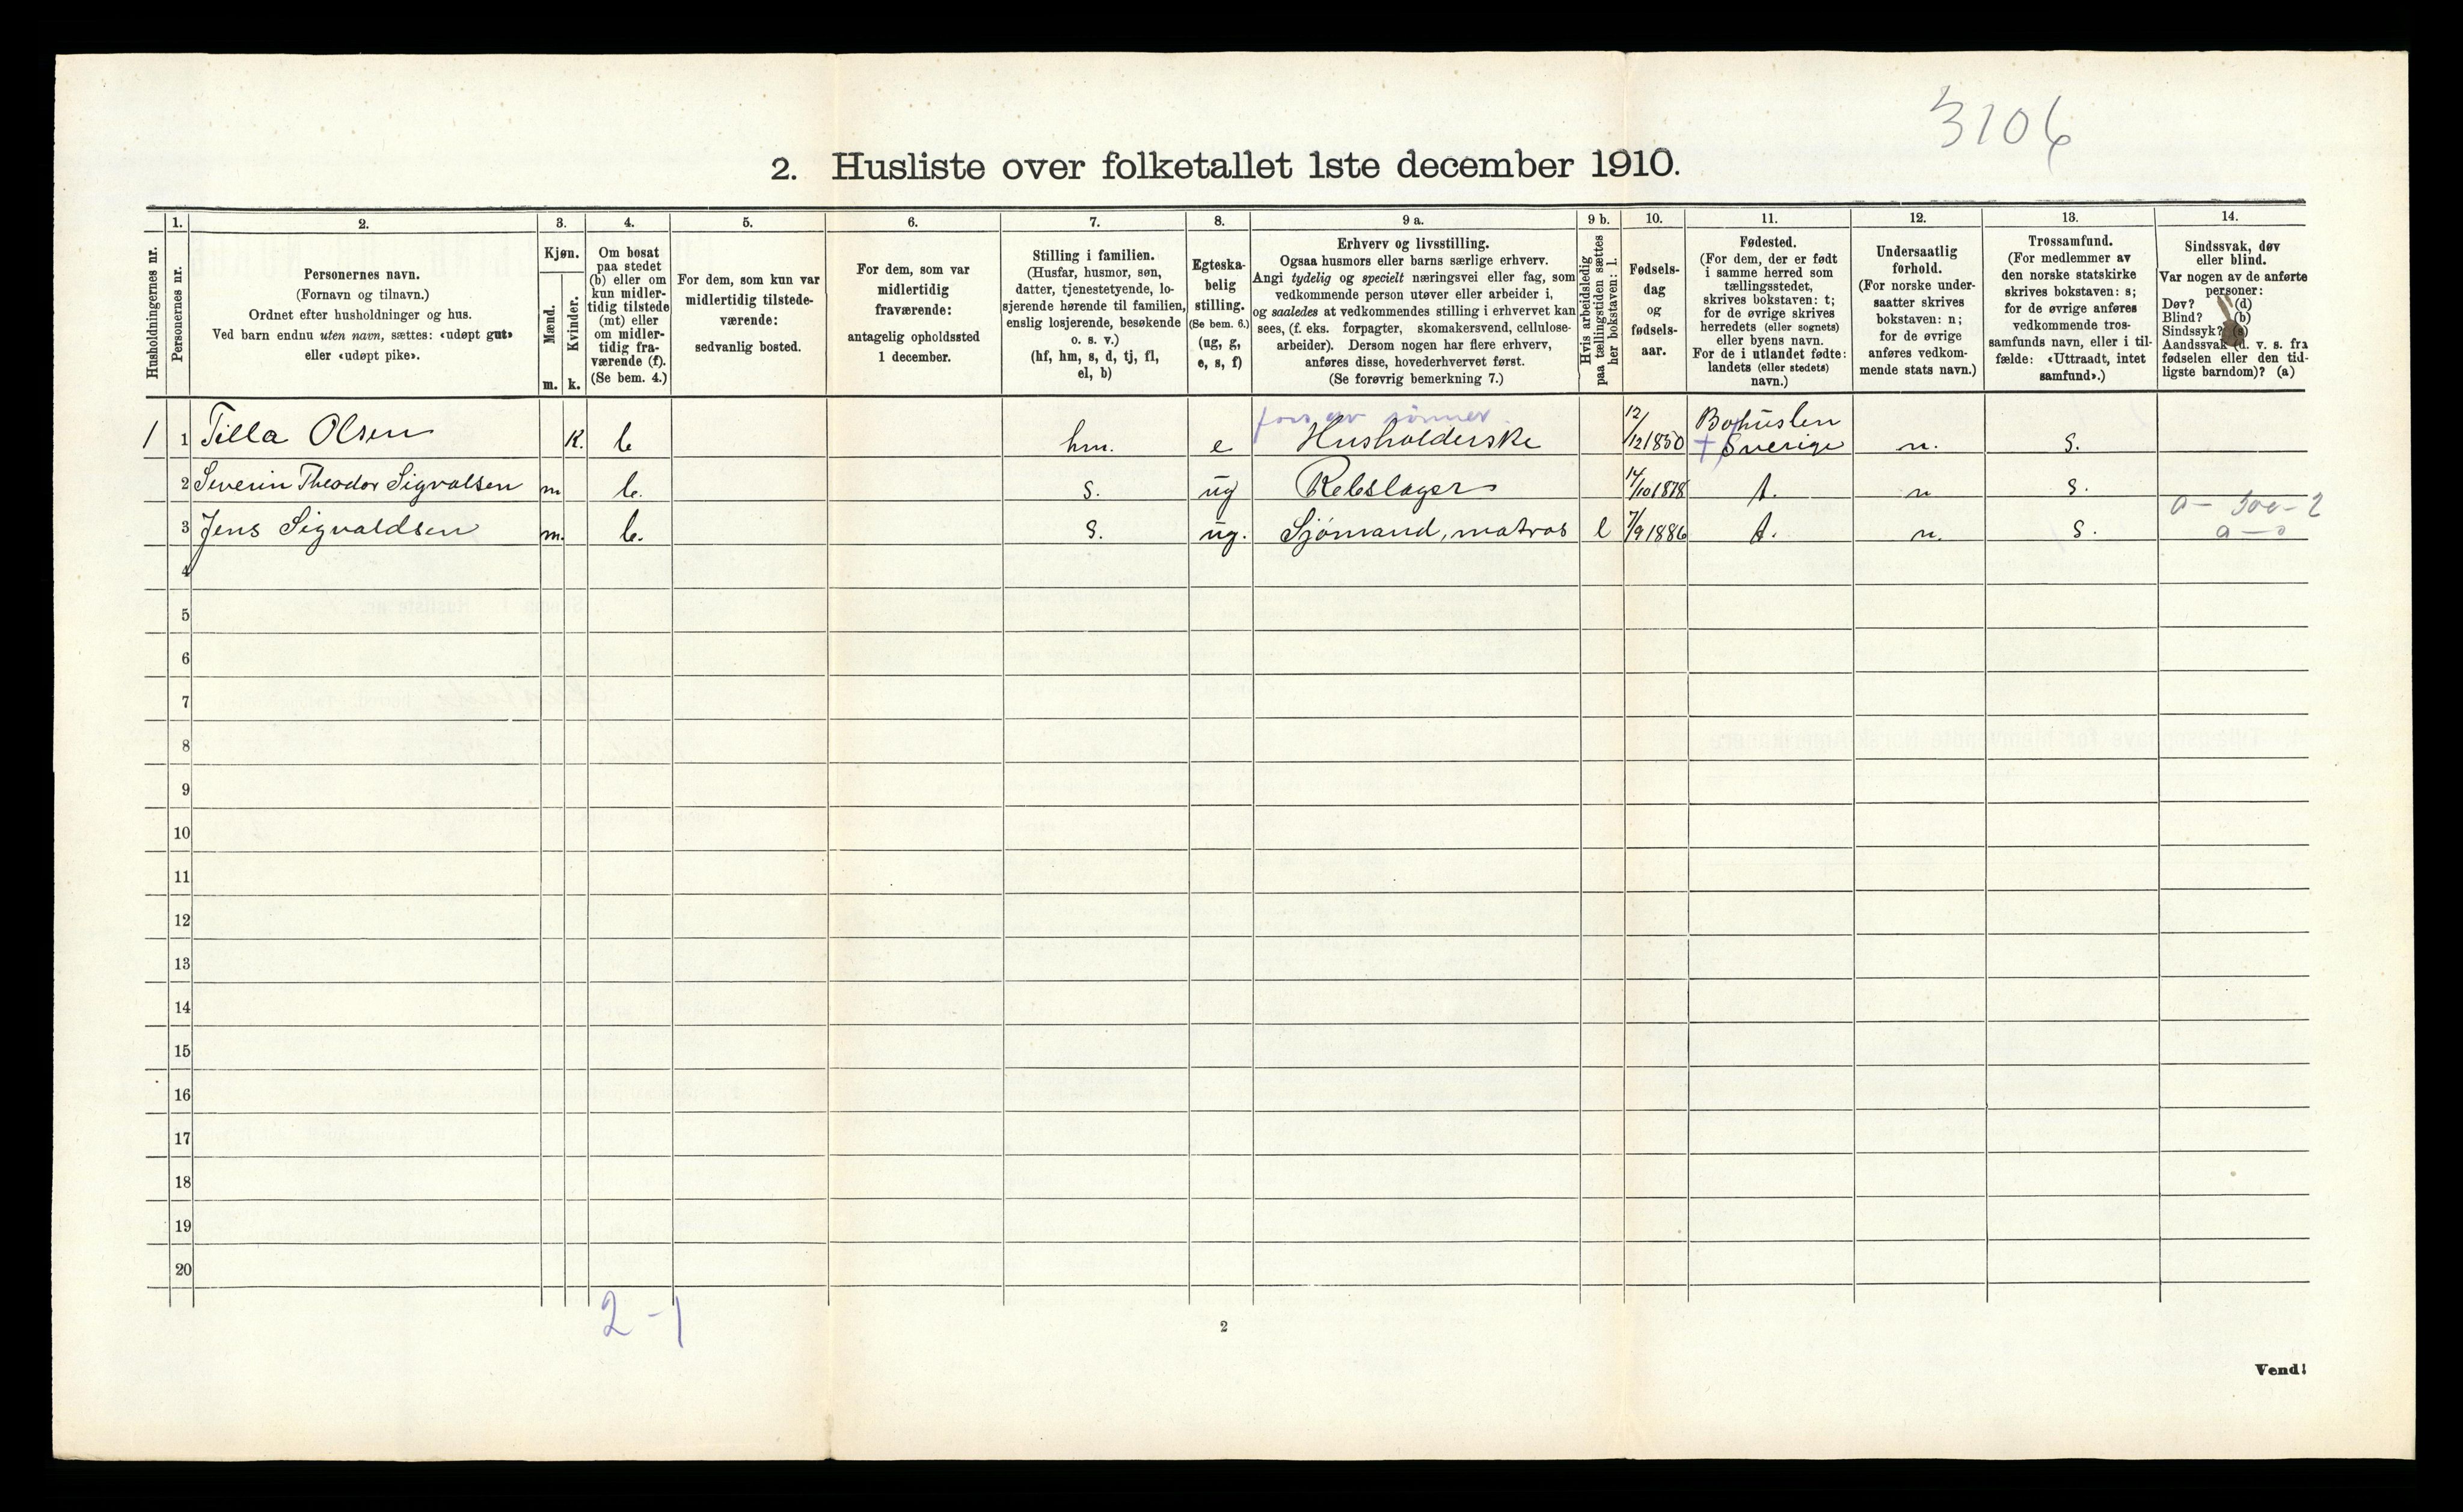 3106
2. Husliste over folketallet 1ste december 1910.
Husholdningernes nr.
1.
Personernes nr.
2.
Personernes navn.
(Fornavn og tilnavn.)
Ordnet efter husholdninger og hus.
Ved barn endnu uten navn, sættes: «udøpt gut»
eller «udøpt pike».
3.
Kjøn.
Mænd.
Kvinder.
m. k.
4.
Om bosat
paa stedet
(b) eller om
kun midler-
tidig tilstede
(mt) eller
om midler-
tidig fra-
værende (f).
(Se bem. 4.)
5.
For dem, som kun var
midlertidig tilstede-
værende:
sedvanlig bosted.
6.
For dem, som var
midlertidig
fraværende:
antagelig opholdssted
1 december.
7.
Stilling i familien.
(Husfar, husmor, søn,
datter, tjenestetyende, lo-
sjerende hørende til familien,
enslig losjerende, besøkende
o. s. v.)
(hf, hm, s, d, tj, fl,
el, b)
8.
Egteska-
belig
stilling.
(Se bem. 6.)
(ug, g,
e, s, f)
9 a.
Erhverv og livsstilling.
Ogsaa husmors eller barns særlige erhverv.
Angi tydelig og specielt næringsvei eller fag, som
vedkommende person utøver eller arbeider i,
og saaledes at vedkommendes stilling i erhvervet kan
sees, (f. eks. forpagter, skomakersvend, cellulose-
arbeider). Dersom nogen har flere erhverv,
anføres disse, hovederhvervet først.
(Se forøvrig bemerkning 7.)
9 b.
Hvis arbeidsledig
paa tællingstiden sættes
her bokstaven: l.
10.
Fødsels-
dag
og
fødsels-
aar.
11.
Fødested.
(For dem, der er født
i samme herred som
tællingsstedet,
skrives bokstaven: t;
for de øvrige skrives
herredets (eller sognets)
eller byens navn.
For de i utlandet fødte:
landets (eller stedets)
navn.)
12.
Undersaatlig
forhold.
(For norske under-
saatter skrives
bokstaven: n;
for de øvrige
anføres vedkom-
mende stats navn.)
13.
Trossamfund.
(For medlemmer av
den norske statskirke
skrives bokstaven: s;
for de øvrige anføres
vedkommende tros-
samfunds navn, eller i til-
fælde: «Uttraadt, intet
samfund».)
14.
Sindssvak, døv
eller blind.
Var nogen av de anførte
personer:
Døv? (d)
Blind? (b)
Sindssyk? (s)
Aandssvak (d. v. s. fra
fødselen eller den tid-
ligste barndom)? (a)
fors. av sønner.
1 1 Tilla Olsen K. b hm. e Husholderske 12/12 1850 Bohuslen + Sverige n. S.
2 Severin Theodor Sigvalsen m b. S. ug Rebslager 14/10 1878 t. n S.
3 Jens Sigvaldsen m. b. S. ug. Sjømand, matros l 7/9 1886 t. n. S.
0 - 500 - 2
0 - 0
4
5
6
7
8
9
10
11
12
13
14
15
16
17
18
19
20
2 - 1
2
Vend!